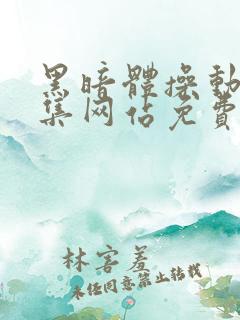 黑暗體操動
集网佔免費
林客羞
未经同意禁止转载